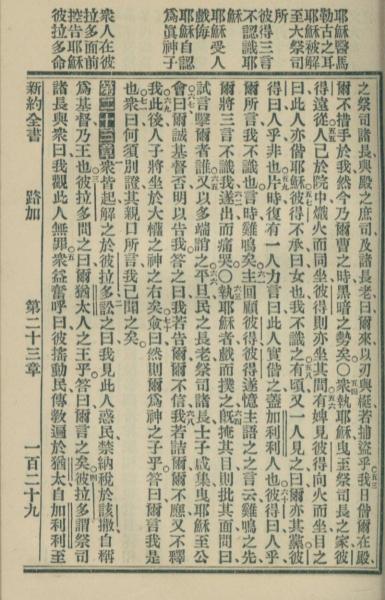 耶穌醫馬
勒古之耳
耶穌被解
至大祭司
所
彼得三言
不認識耶
穌
耶穌受人
戲侮
耶穌自認
爲眞神子
衆人在彼
拉多面前
控告耶穌
彼拉多命
之祭司諸長與殿之庶司及諸長老曰爾來以刃與梃若捕盜乎我日偕爾在殿
爾不措手於我然今乃爾曹之時黑暗之勢矣○衆執耶穌曳至祭司長之家彼
得遠從人已於院中熾火而同坐彼得則亦坐其間有婢見彼得向火而坐目之
曰此人亦偕耶穌彼得不承曰女也我不識之有頃又一人見之曰爾亦其黨彼
得曰人乎非也片時復有一人力言曰此人實偕之蓋加利利人也彼得曰人乎
爾所言我不識也言時雞鳴矣主回顧彼得彼得遂憶主語之之言云雞鳴之先
爾將三言不識我遂出而痛哭○執耶穌者戲而撲之旣掩其目則批其面問曰
試言擊爾者誰又以多端謗之平旦民之長老祭司諸長士子咸集曳耶穌至公
會曰爾誠基督否明以告我答之曰我若告爾爾不信我若詰爾爾不應又不釋
我此後人子將坐於大權之神之右矣僉曰然則爾爲神之子乎答曰爾言我是
也衆曰何須別證其親口所言我已聞之矣
第二十三章衆皆起解之於彼拉多訟之曰我見此人惑民禁納稅於該撒自稱
爲基督乃王也彼拉多問之曰爾猶太人之王乎答曰爾言之矣彼拉多謂祭司
諸長與衆曰我觀此人無罪衆益奮呼曰彼搖動民傳敎遍於猶太自加利利至
新約全書　路加　第二十三章　一百二十九